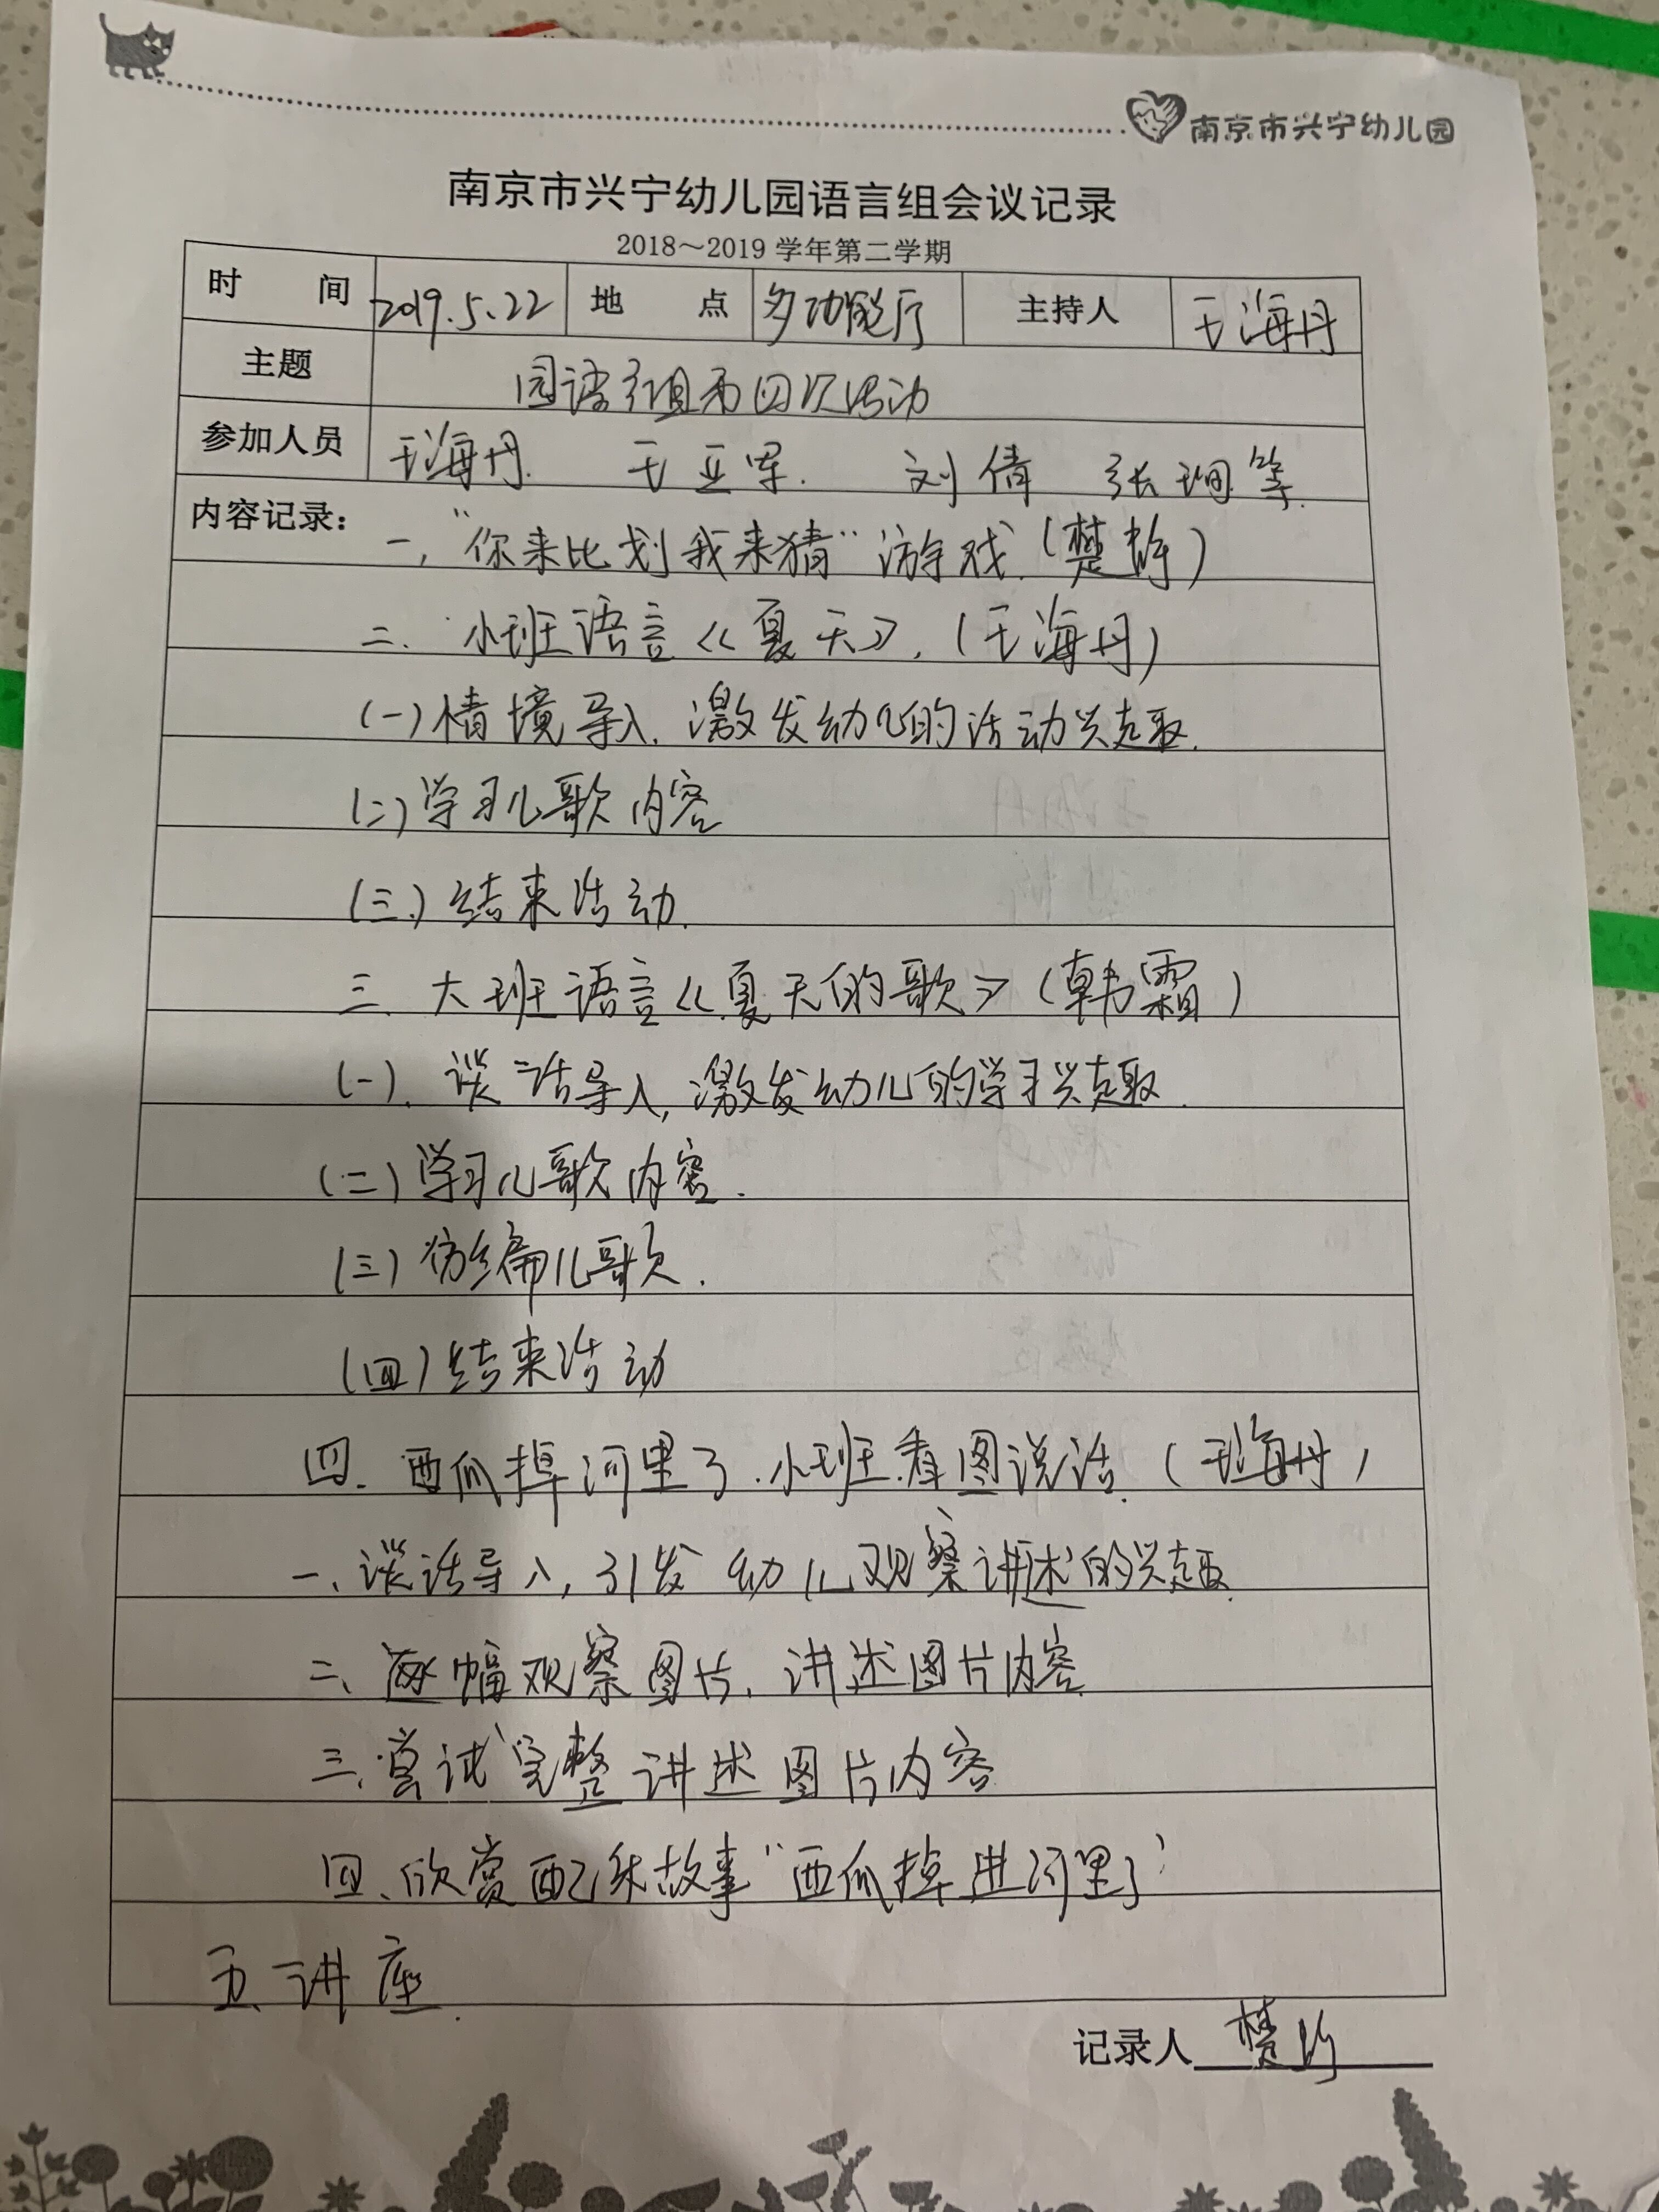 南京市兴宁幼儿园
南京市兴宁幼儿园语言组会议记录
2018～2019 学年第二学期
时 间 2019.5.22 地 点 多功能厅 主持人 王海丹
主题 园语言组第四次活动
参加人员 王海丹. 王亚军. 刘倩 张珣等.
内容记录：
一，“你来比划我来猜”游戏.（楚）
二. 小班语言《夏天》.（王海丹）
（一）情境导入.激发幼儿的活动兴趣.
（二）学习儿歌内容
（三.）结束活动.
三. 大班语言《夏天的歌》（韩霜）
（一）. 谈话导入,激发幼儿的学习兴趣.
（二）学习儿歌内容.
（三）仿编儿歌.
（四）结束活动
四. 西瓜掉河里了.小班看图说话.（王海丹）
一、谈话导入,引发幼儿观察讲述的兴趣.
二、逐幅观察图片、讲述图片内容.
三、尝试完整讲述图片内容
四、欣赏配乐故事“西瓜掉进河里了”
五、讲座.
记录人 楚